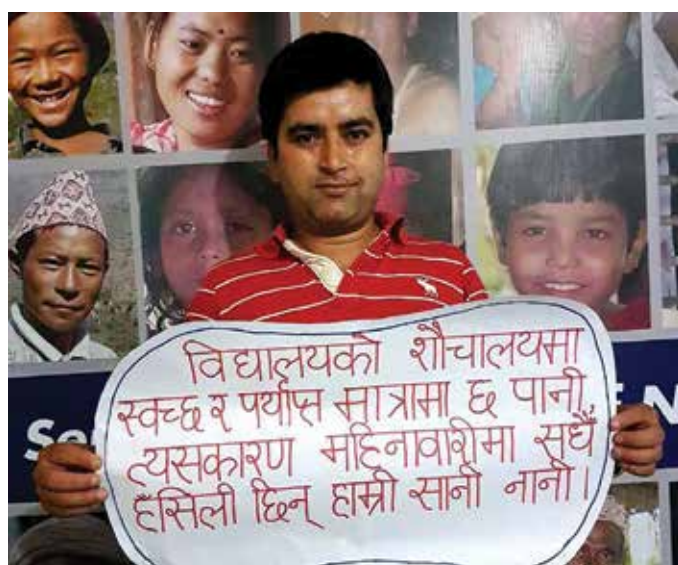 विद्यालयको शौचालयमा
स्वच्छ र पर्याप्त मात्रामा छ पानी
त्यसकारण महिनावारीमा सधैँ
हँसिली छिन् हाम्री सानी नानी।
Se
N